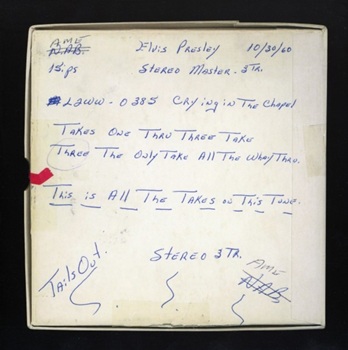 AME
NAB
Elvis Presley 10/30/60
15 ips Stereo Master - 3 Tr.
L2WW - 0385 Crying in The Chapel
Takes One Thru Three Take
Three The Only Take All The Whey Thru.
This is All The Takes on This Tune.
Tails Out.
Stereo 3 Tr.
AME
NAB